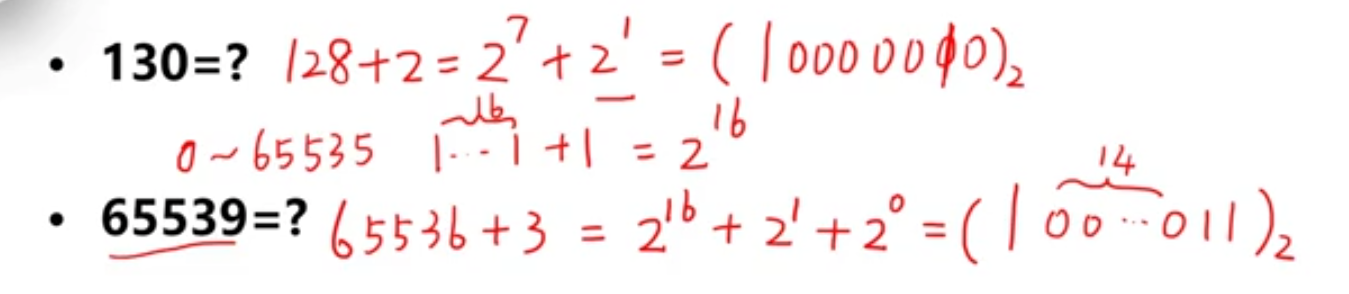 • 130=? 128+2=2⁷+2¹=(10000010)₂
0~65535 1...1 (16) +1 =2¹⁶
• 65539=? 65536+3 = 2¹⁶+2¹+2⁰=(100...011)₂ (14)